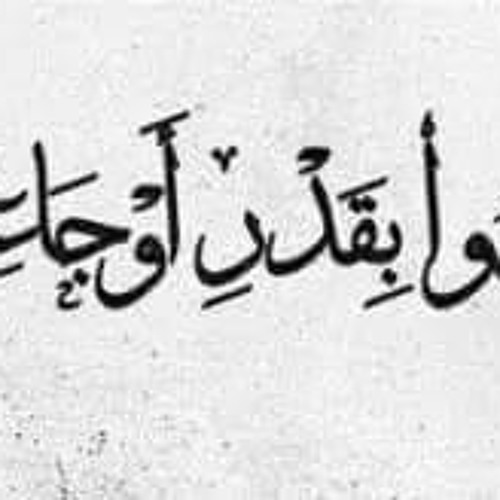 وا بِقَدْرِ أَوْجَاعِ